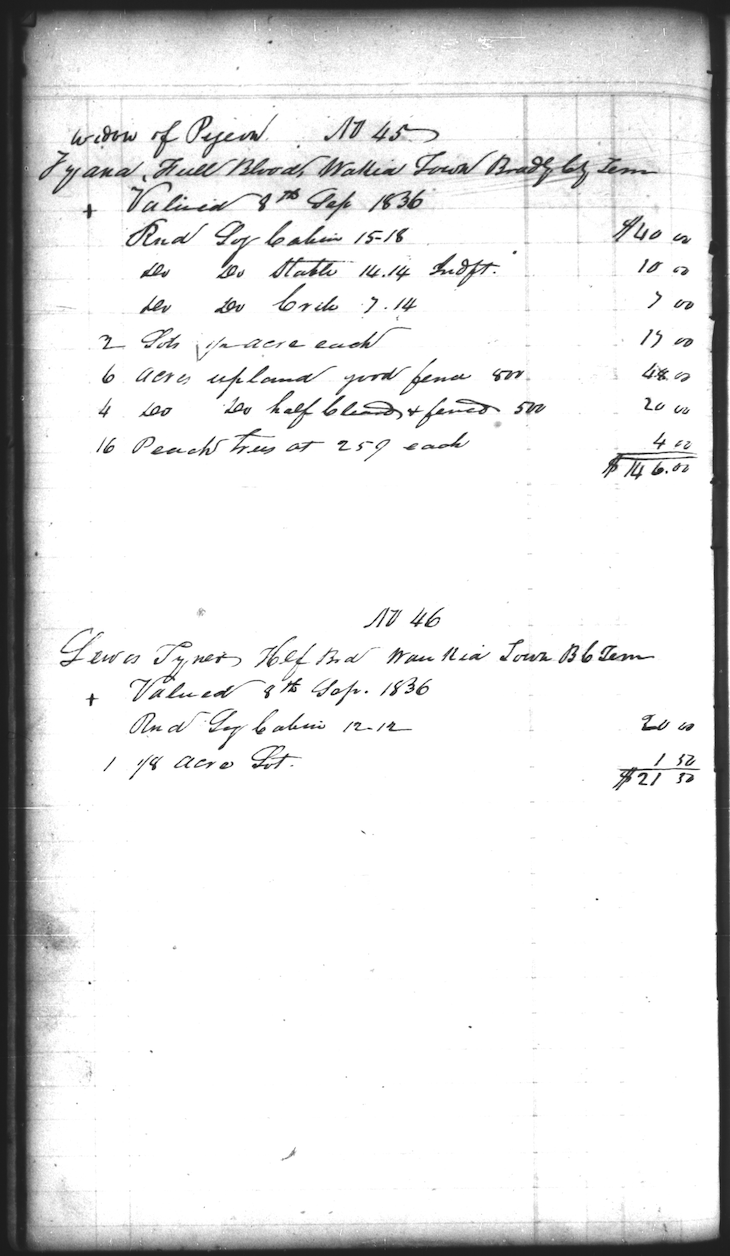 Widow of Pigeon No 45
Full Blood, Wakia Town Bradly Cty Tenn
+ Valued 8th Sep 1836
Rnd Log Cabin 15-18 $40 00
Do Do Stable 14.14 Indft. 10 00
Do Do Crib 7.14 7 00
2 Lots 1/2 acre each 17 00
6 Acres upland good fence 800 48 00
4 Do Do half Cleard & fenced 500 20 00
16 Peach trees at 25¢ each 4 00
$146.00
No 46
Lewis Tyner Hlf Brd Waukia Town B C Tenn
+ Valued 8th Sep. 1836
Rnd Log Cabin 12-12 20 00
1 1/8 acre Lot. 1 50
$21 50